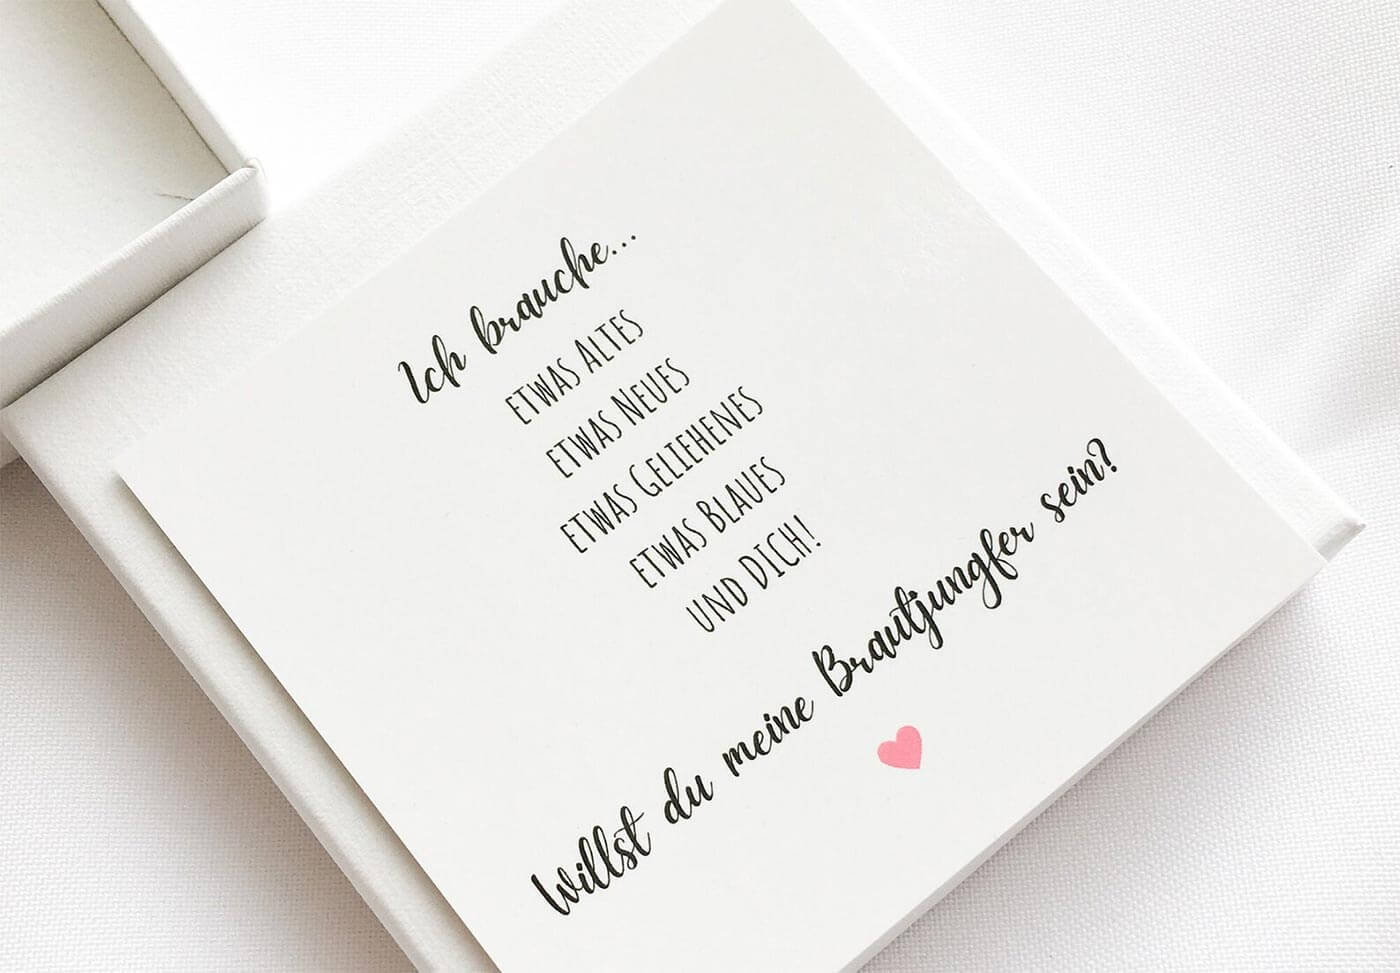 Ich brauche...
ETWAS ALTES
ETWAS NEUES
ETWAS GELIEHENES
ETWAS BLAUES
UND DICH!
Willst du meine Brautjungfer sein?